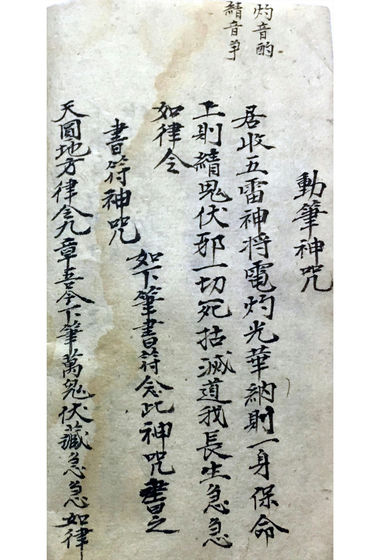 灼音酌
綪音爭
動筆神咒
居收五雷神將電灼光華納則一身保命
上則綪鬼伏邪一切死滅道我長生急急
如律令
書符神咒 如下筆書符念此神咒書之
天圓地方律令九章吾今下筆萬鬼伏藏急急如律